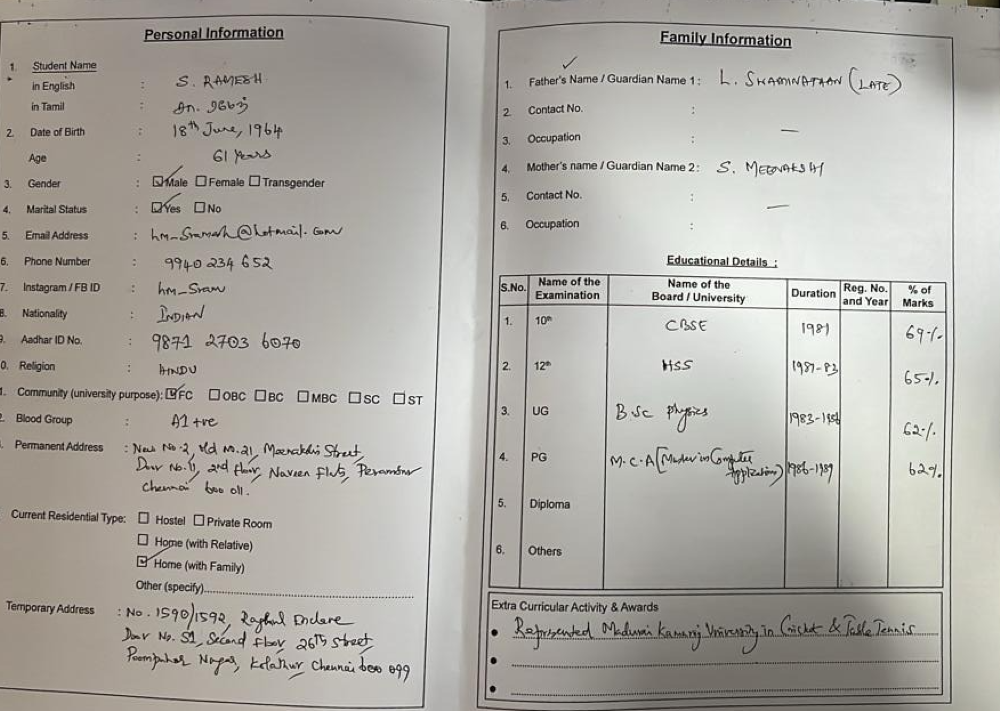 Personal Information
1. Student Name
in English : S. RAMESH
in Tamil :
2. Date of Birth : 18th June, 1964
Age : 61 Years
3. Gender : ☑Male ☐Female ☐Transgender
4. Marital Status : ☑Yes ☐No
5. Email Address : hm_Sramesh@hotmail.com
6. Phone Number : 9940 234 652
7. Instagram / FB ID : hm_Sram
8. Nationality : INDIAN
9. Aadhar ID No. : 9871 2703 6070
0. Religion : HINDU
1. Community (university purpose): ☑FC ☐OBC ☐BC ☐MBC ☐SC ☐ST
2. Blood Group : A1 +ve
Permanent Address : New No.2, Old No.21, Meenakshi Street,
Door No. 11, 2nd floor, Naveen Flats, Perambur
Chennai 600 011.
Current Residential Type: ☐ Hostel ☐ Private Room
☐ Home (with Relative)
☑ Home (with Family)
Other (specify)
Temporary Address : No. 1590/1592, Raghul Enclave
Door No. S1, Second floor 26th Street,
Poompuhar Nagar, Kolathur Chennai 600 099
Family Information
1. Father's Name / Guardian Name 1 : L. SWAMINATHAN (LATE)
2. Contact No. :
3. Occupation —
4. Mother's name / Guardian Name 2 : S. MEENAKSHI
5. Contact No. :
6. Occupation : —
Educational Details :
S.No. Name of the Examination Name of the Board / University Duration Reg. No. and Year % of Marks
1. 10th CBSE 1981 69%
2. 12th HSS 1981-83 65%
3. UG B.Sc Physics 1983-1986 62%
4. PG M.C.A [Master in Computer Applications] 1986-1989 62%
5. Diploma
6. Others
Extra Curricular Activity & Awards
• Represented Madurai Kamaraj University in Cricket & Table Tennis
•
•